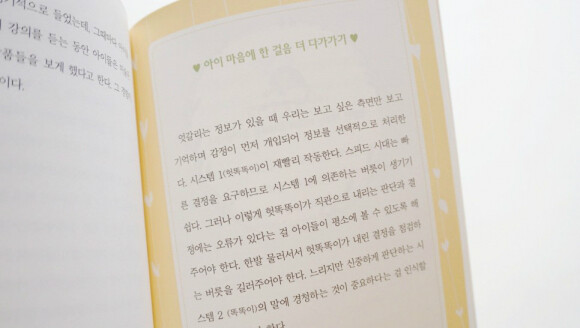 적으로 들었는데, 그때마다
강의를 듣는 동안 아이들은
품들을 보게 했다고 한다. 그
이다.
♥ 아이 마음에 한 걸음 더 다가가기 ♥
엇갈리는 정보가 있을 때 우리는 보고 싶은 측면만 보고
기억하며 감정이 먼저 개입되어 정보를 선택적으로 처리한
다. 시스템 1(헛똑똑이)이 재빨리 작동한다. 스피드 시대는 빠
른 결정을 요구하므로 시스템 1에 의존하는 버릇이 생기기
쉽다. 그러나 이렇게 헛똑똑이가 직관으로 내리는 판단과 결
정에는 오류가 있다는 걸 아이들이 평소에 볼 수 있도록 해
주어야 한다. 한발 물러서서 헛똑똑이가 내린 결정을 점검하
는 버릇을 길러주어야 한다. 느리지만 신중하게 판단하는 시
스템 2 (똑똑이)의 말에 경청하는 것이 중요하다는 걸 인식할
한다.